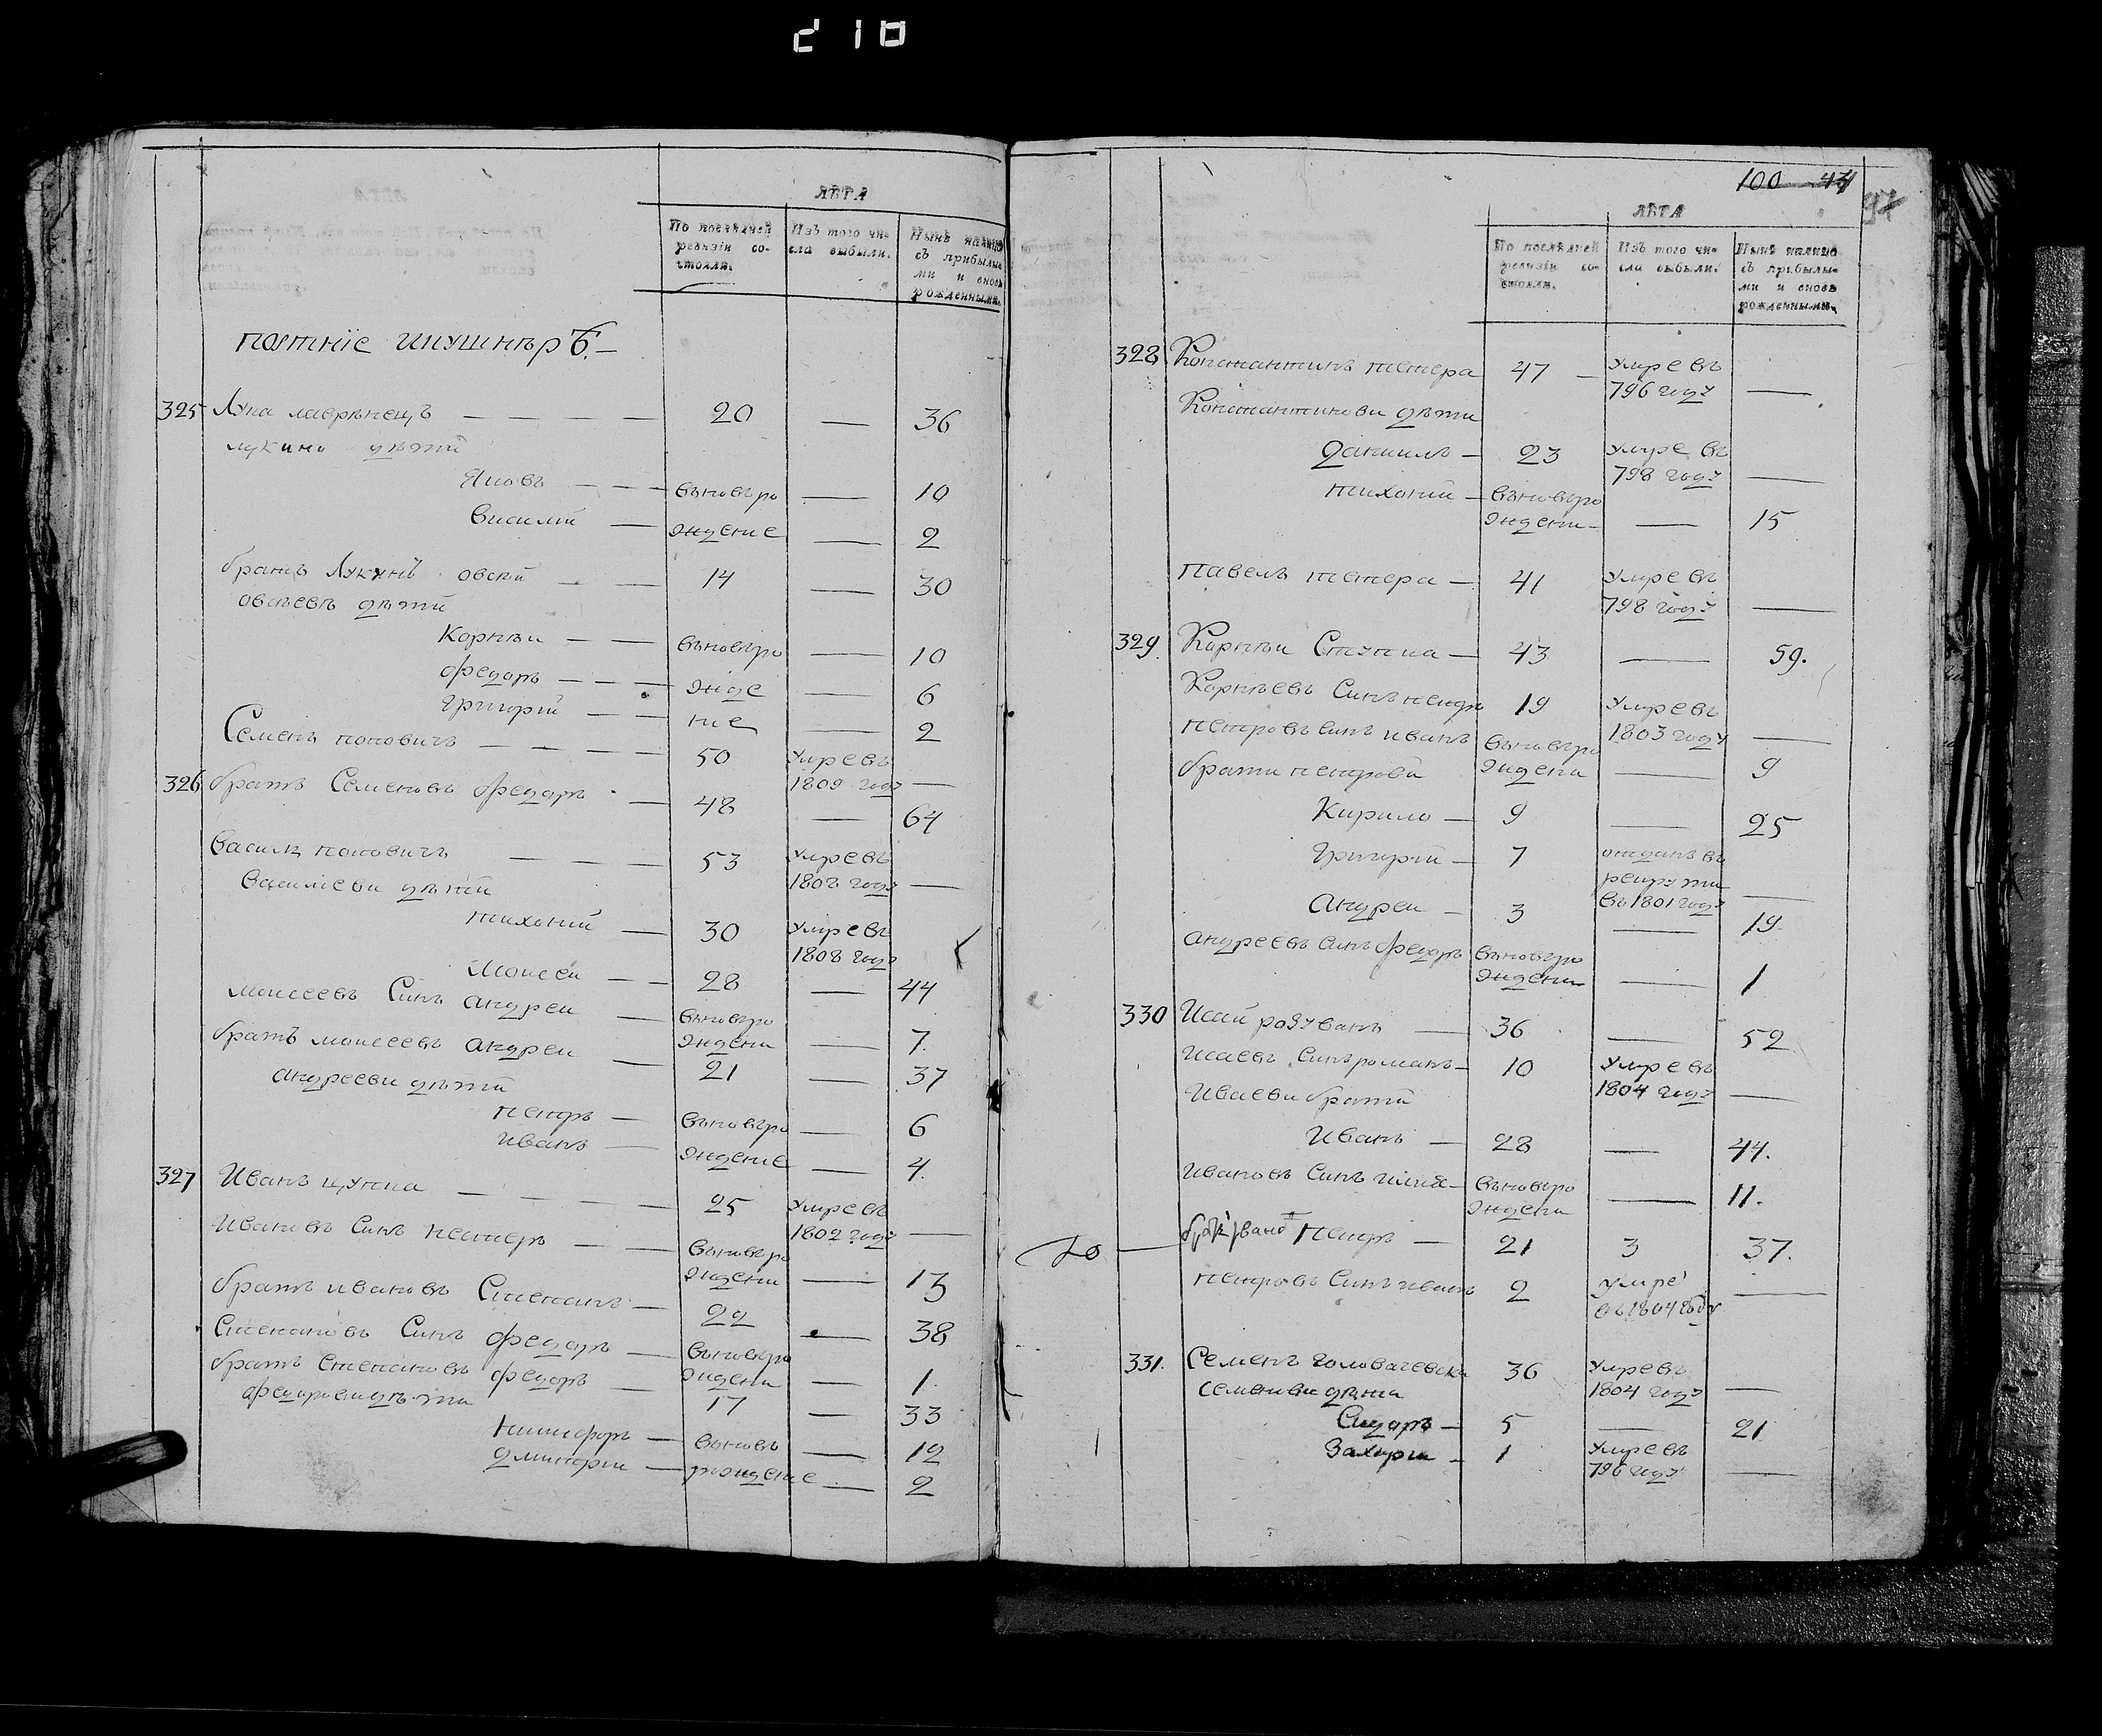 218
ЛѢТА
По послѣдней ревизіи со-стояли.
Изъ того чи-сла выбыли.
Нынѣ налицо съ прибылы-ми и вновь рожденными.
325 Лука 20 — 36
лукини дѣти
Яковъ — вьновьро — 10
Василій — ждение — 2
братъ Лукинъ овсѣй — 14 — 30
овсѣевъ дѣти
Корнѣи — вьновьро — 10
федоръ — жде — 6
Григорій — ние — 2
Семенъ поповичъ — 50 Умре въ 1809 году —
326 братъ Семеновъ федоръ — 48 — 64
Василь поповичъ — 53 Умре въ 1808 году —
Василіеви дѣти
тихоній — 30 Умре въ 1808 году
Моисеи — 28 — 44
моисеевъ Синъ андреи — вьновьро ждени — 7.
братъ моисеевъ андреи — 21 — 37
андрееви дѣтй
петръ — вьновьро — 6
иванъ — ждение — 4.
327 Иванъ цупка — 25 Умре въ 1802 году —
Ивановъ Синъ нестеръ — вьновьро ждени — 13
братъ ивановъ Степанъ — 22 — 38
Степановъ Синъ федоръ — вьновьро ждени — 1.
братъ степановъ федоръ — 17 — 33
федорови дѣти
никифоръ — вьновь — 12
дмитрии — рождение — 2
100 44
97
ЛѢТА
По послѣдней ревизіи со-стояли.
Изъ того чи-сла выбыли.
Нынѣ налицо съ прибылы-ми и вновь рожденными.
328 Константинъ тетера 47 — Умре въ 796 году —
Константинови дѣти
даниилъ — 23 Умре въ 798 году —
тихоний — вьновьро ждени — — 15
павелъ тетера — 41 Умре въ 798 году —
329. Корнѣи Ступка — 43 — 59.
Корнѣевъ Синъ петръ 19 Умре въ 1803 году —
петровъ синъ иванъ вьновьро ждени — 9
брати петрови
Кирило — 9 — 25
Григорій — 7 отданъ въ рекрути въ 1801 году —
Андреи — 3 — 19.
андреевъ синъ федоръ вьновьро ждени — 1
330 Исай розуванъ — 36 — 52
Исаевъ Синъ романъ — 10 Умре въ 1804 году —
Исаеви братй
Иванъ — 28 — 44.
Ивановъ Синъ илия — вьновьро ждени — 11.
петръ — 21 3 37.
петровъ Синъ иванъ 2 умре въ 1804 году —
331. Семенъ головачевски 36 Умре въ 1804 году —
семенови дѣти
Сидоръ — 5 — 21
Захари — 1 Умре въ 796 году —